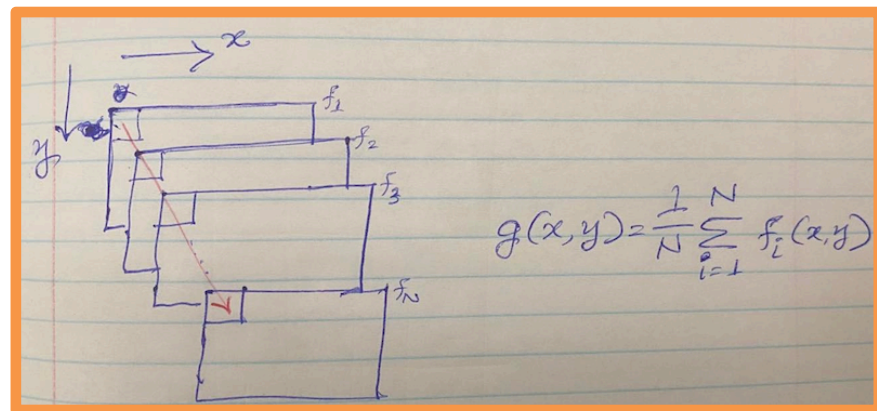 x
y
f₁
f₂
f₃
f_N
g(x,y)=1/N ∑_{i=1}^{N} f_i(x,y)